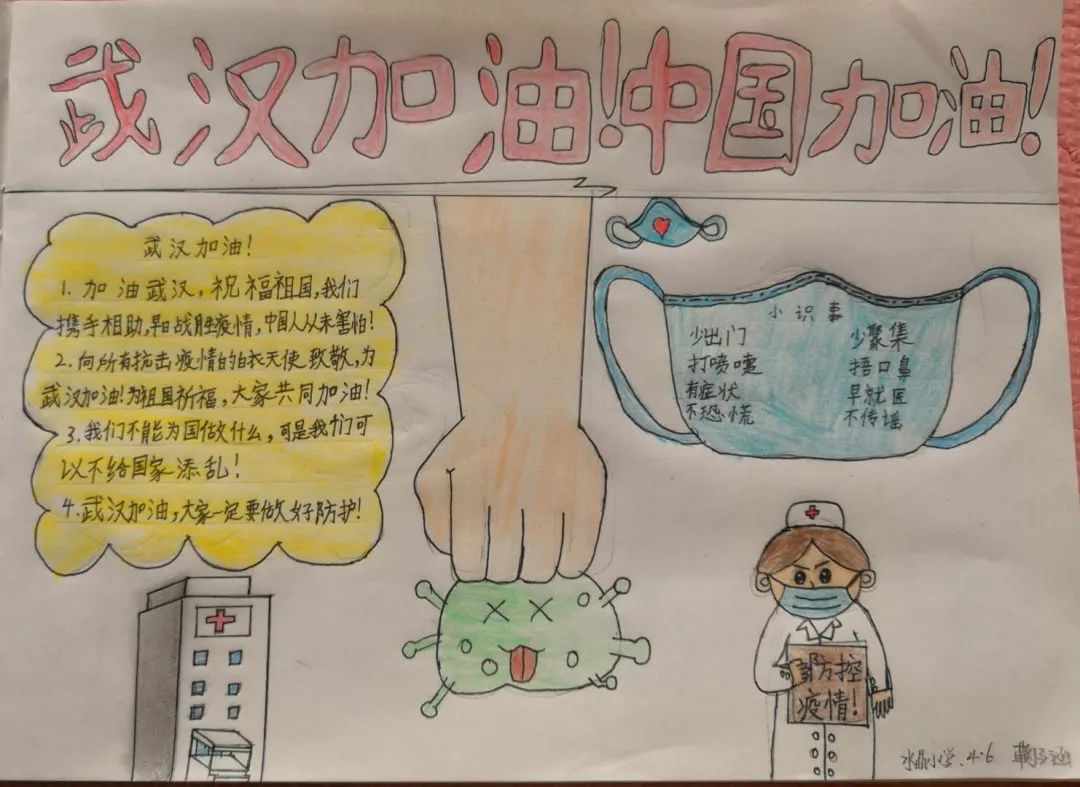 武汉加油！中国加油！
武汉加油！
1. 加油武汉，祝福祖国，我们
携手相助，早日战胜疫情，中国人从未害怕！
2. 向所有抗击疫情的白衣天使致敬，为
武汉加油！为祖国祈福，大家共同加油！
3. 我们不能为国做什么，可是我们可
以不给国家添乱！
4. 武汉加油，大家一定要做好防护！
小识事
少出门 少聚集
打喷嚏 捂口鼻
有症状 早就医
不恐慌 不传谣
防控
疫情！
水晶小学.4.6